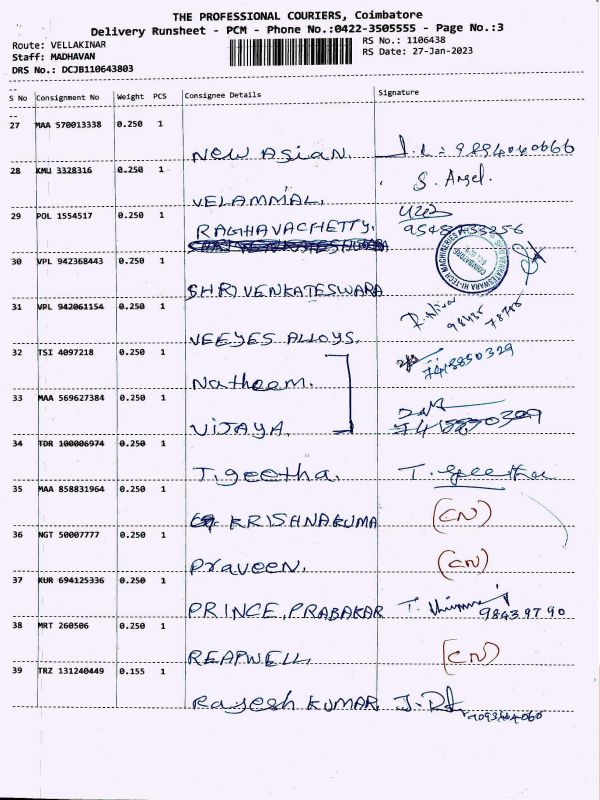 THE PROFESSIONAL COURIERS, Coimbatore
Delivery Runsheet - PCM - Phone No.:0422-3505555 - Page No.:3
Route: VELLAKINAR RS No.: 1106438
Staff: MADHAVAN RS Date: 27-Jan-2023
DRS No.: DCJB110643803
S No Consignment No Weight PCS Consignee Details Signature
27 MAA 570013338 0.250 1
New Asian.
28 KMU 3328316 0.250 1 S. Angel.
VELAMMAL.
29 POL 1554517 0.250 1
RAGHAVACHETTY.
30 VPL 942368443 0.250 1
SHRI VENKATESWARA
31 VPL 942061154 0.250 1
VEEYES ALLOYS.
32 TSI 4097218 0.250 1 7418850329
Natheem.
33 MAA 569627384 0.250 1
VIJAYA.
34 TDR 100006974 0.250 1
T.geetha. T. Geetha
35 MAA 858831964 0.250 1
KRISHNAKUMA (CN)
36 NGT 50007777 0.250 1
Praveen. (CN)
37 KUR 694125336 0.250 1
PRINCE.PRABAKAR T.
38 MRT 260506 0.250 1
REAPWELL. (CN)
39 TRZ 131240449 0.155 1
Rajesh KUMAR